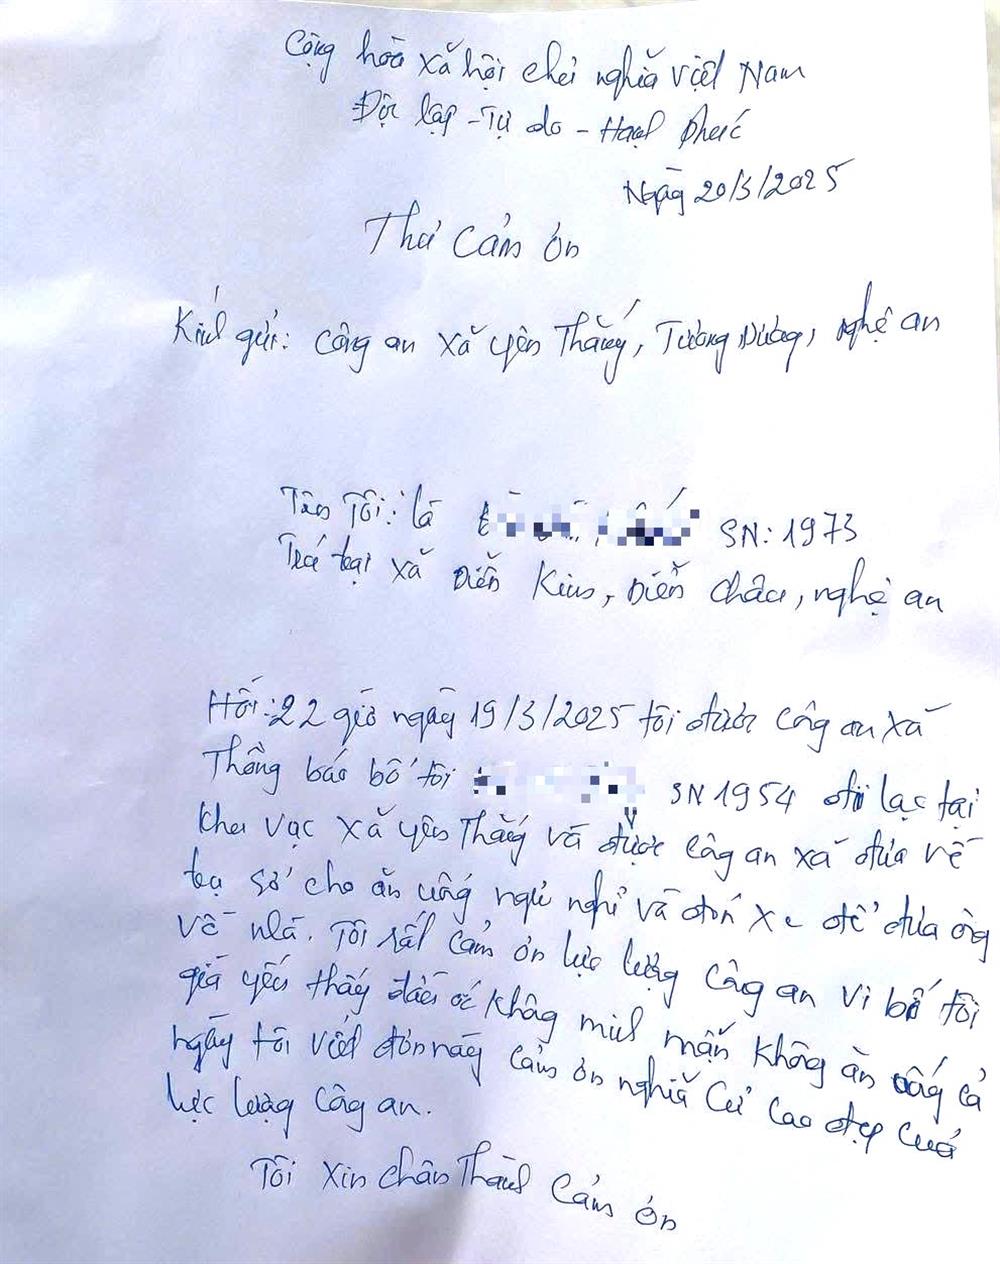 Cộng hòa xã hội chủ nghĩa việt Nam
Độc lập - Tự do - Hạnh phúc
Ngày 20/3/2025
Thư Cảm ơn
Kính gửi: công an xã yên Thắng, Tương Dương, nghệ an
Tên Tôi: là SN: 1973
Trú tại xã Diễn Kim, Diễn Châu, nghệ an
Hồi: 22 giờ ngày 19/3/2025 tôi được công an xã
Thông báo bố tôi SN 1954 đi lạc tại
khu vực xã yên Thắng và được công an xã đưa về
trụ sở cho ăn uống ngủ nghỉ và đón xe để đưa ông
về nhà. Tôi rất cảm ơn lực lượng công an vì bố tôi
già yếu thấy đầu óc không minh mẫn không ăn uống cả
ngày tôi viết đơn này cảm ơn nghĩa cử cao đẹp của
lực lượng công an.
Tôi xin chân Thành cảm ơn